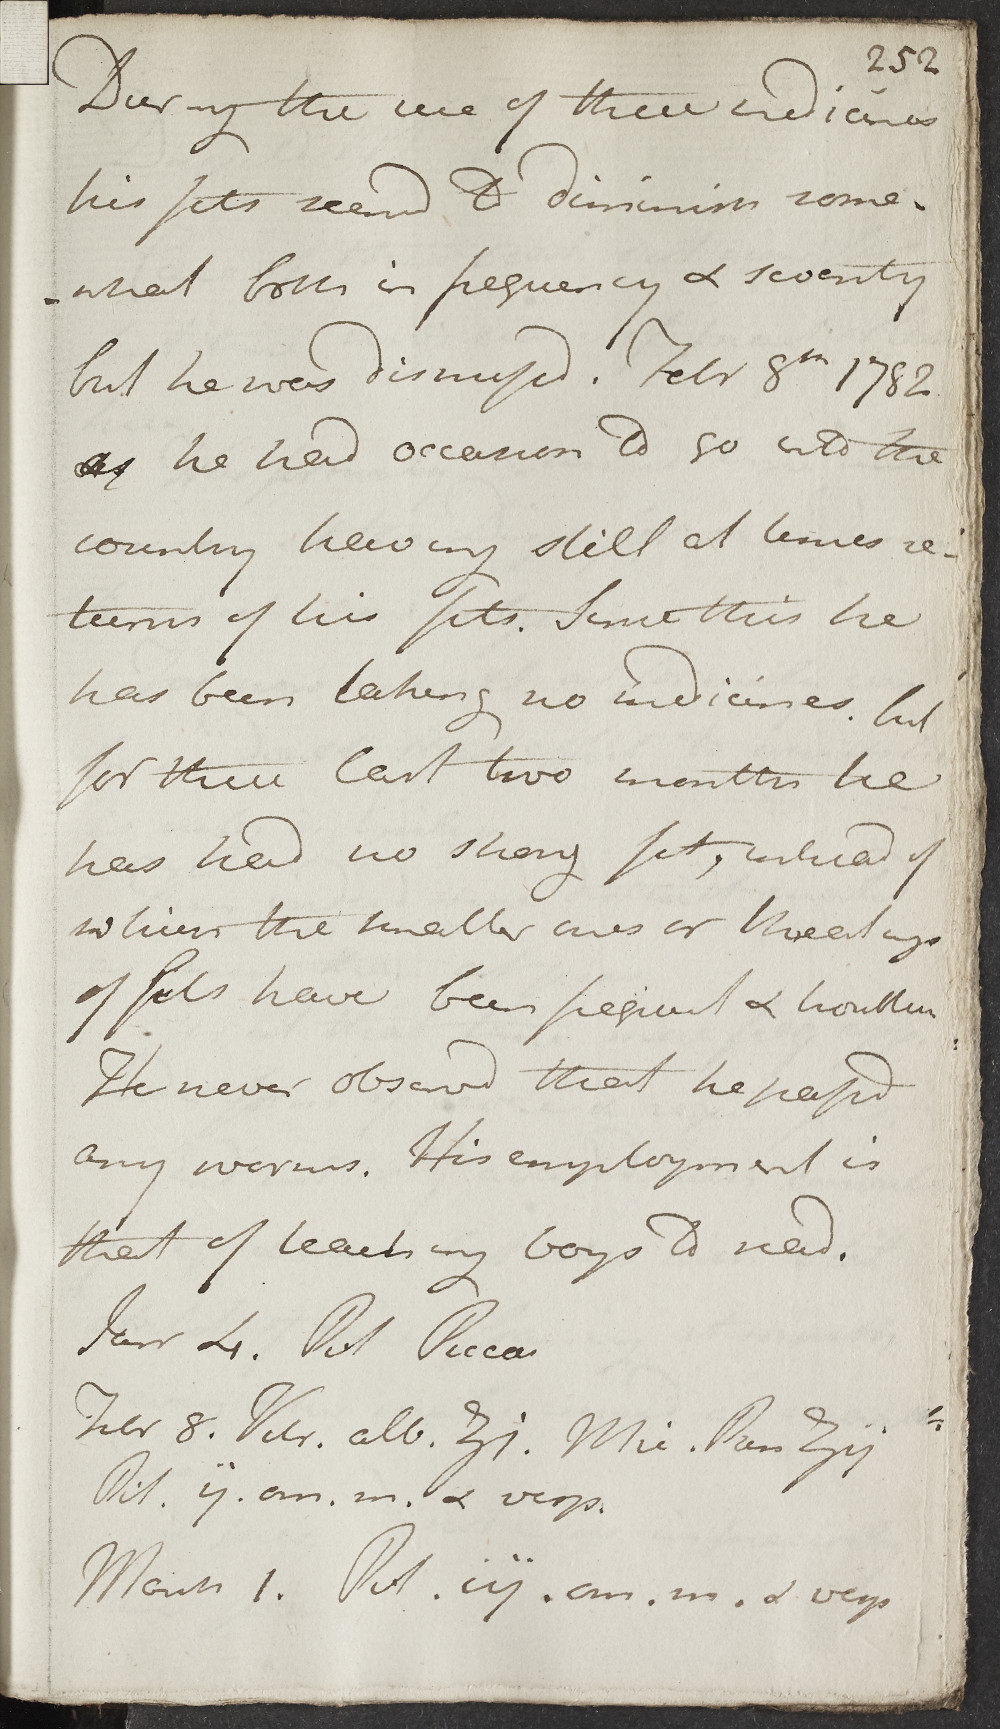 252
During the use of these medicines
his fits seemd to diminish some-
-what both in frequency & severity
but he was dismissed. Febr 8th 1782
as he had occasion to go into the
country having still at times re-
turns of his fits. Since this he
has been taking no medicines. but
for these last two months he
has had no strong fit, instead of
which the smaller ones or threatnings
of fits have been frequent &
He never observd that he passd
any worms. His employment is
that of teaching boys to read.
Janr 4. Pil Picea
Febr 8. Vitr. alb. ʒj. Mic. Pan ʒij
Pil. ij. om. m. & vesp.
March 1. Pil. iij. om. m. & vesp